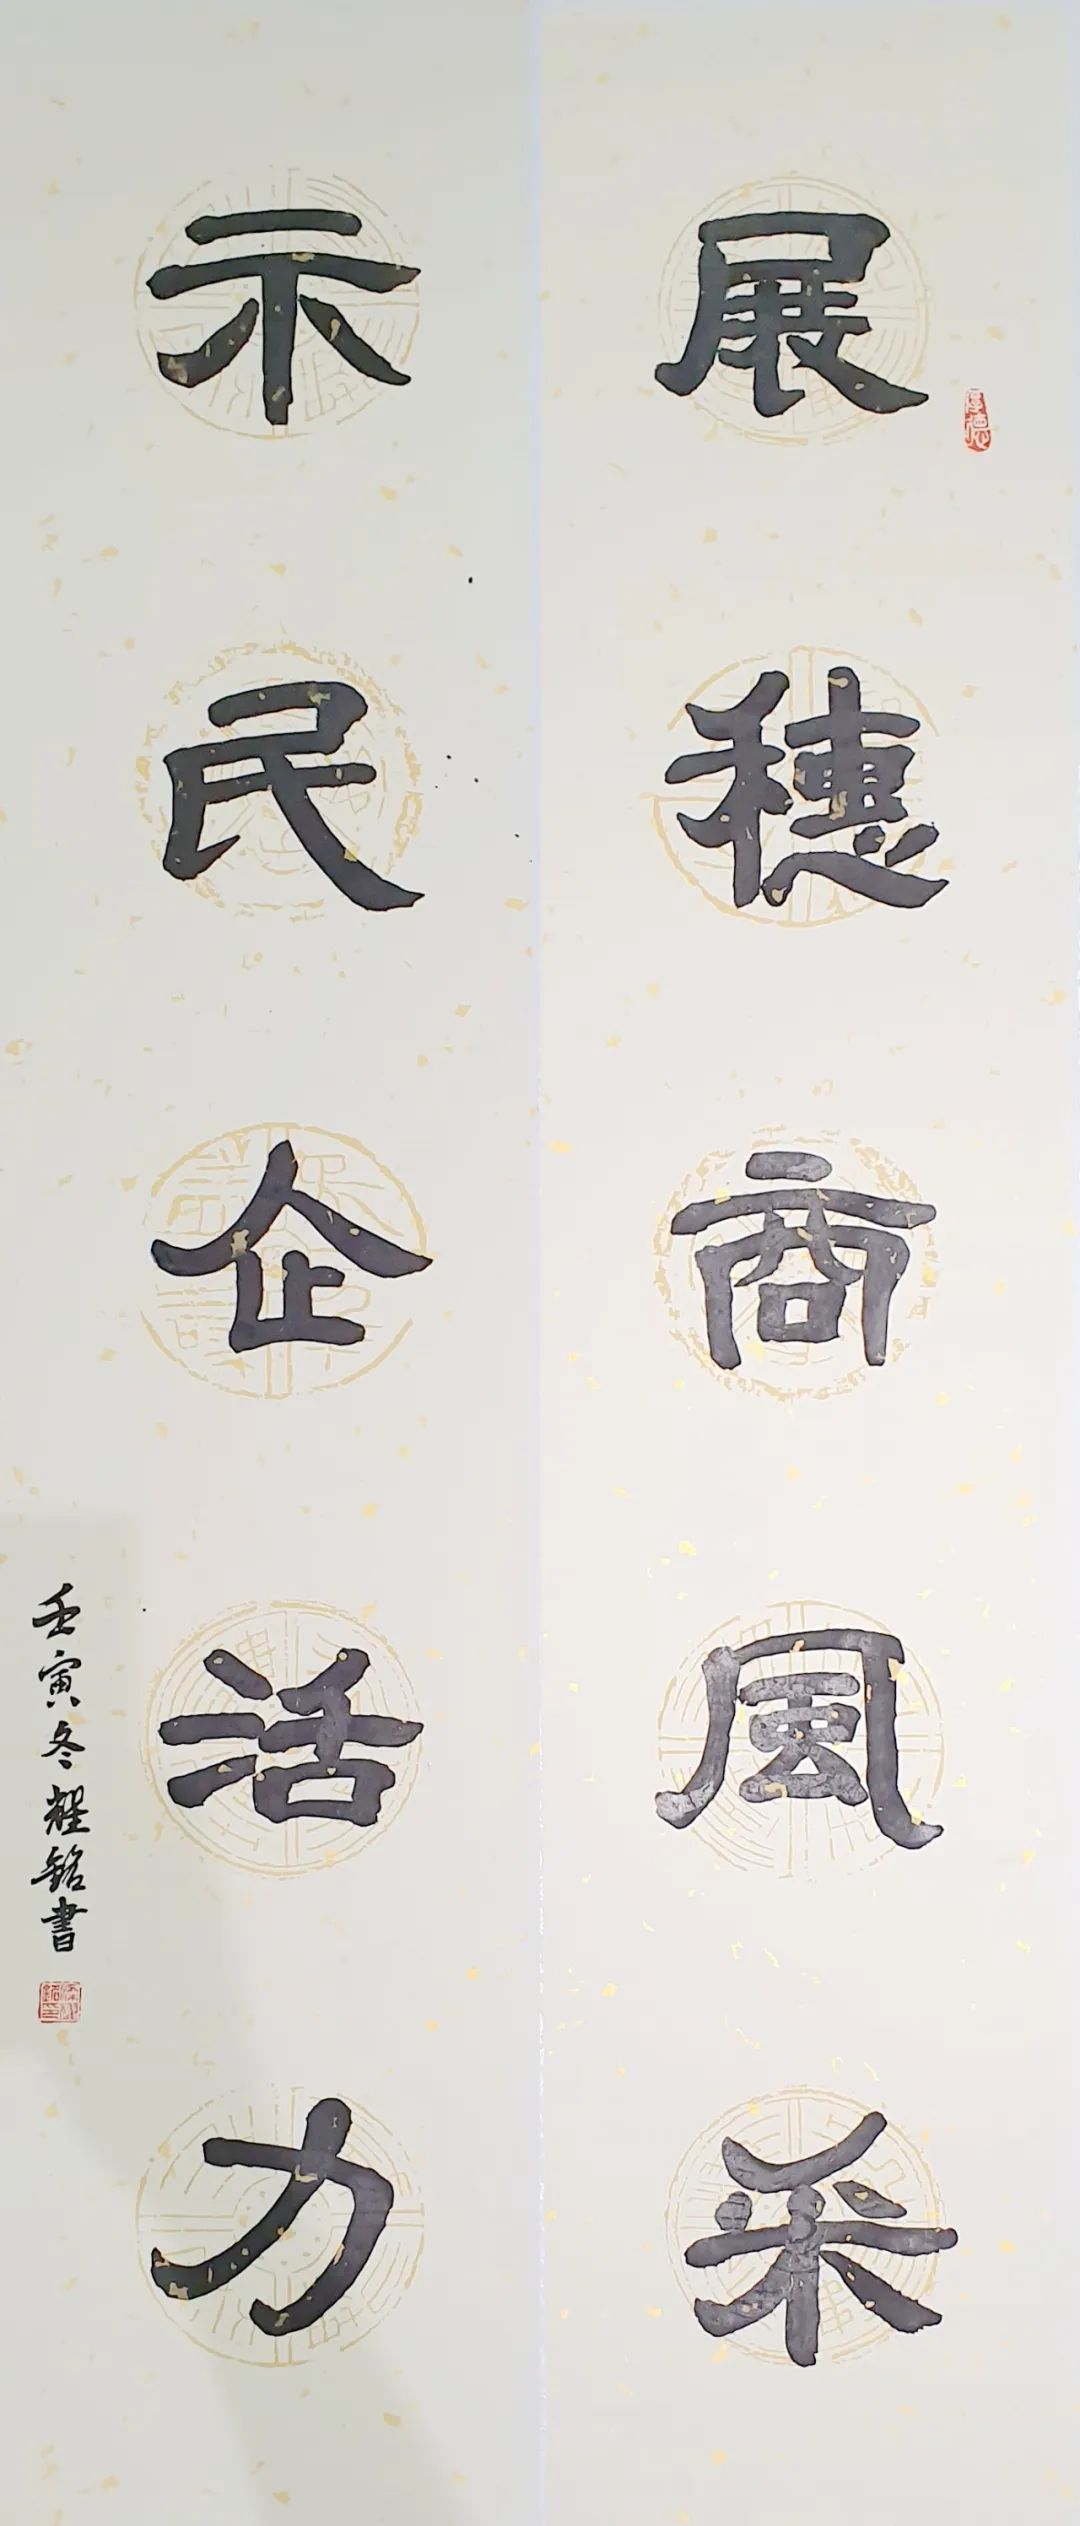 展穗商風采
厚德
示民企活力
壬寅冬耀銘書